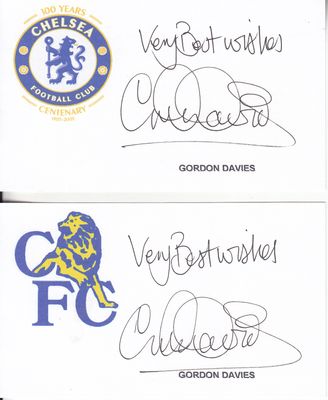 100 YEARS
CHELSEA
FOOTBALL CLUB
CENTENARY
1905-2005
Very Best wishes
GORDON DAVIES
CFC
Very Best wishes
GORDON DAVIES